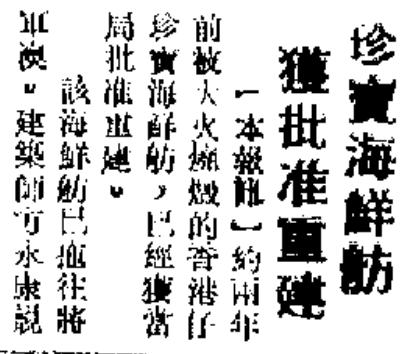 珍寶海鮮舫
獲批准重建
【本報訊】約兩年
前被大火燒燬的香港仔
珍寶海鮮舫，已經獲當
局批准重建。
該海鮮舫已拖往將
軍澳。建築師方永康説